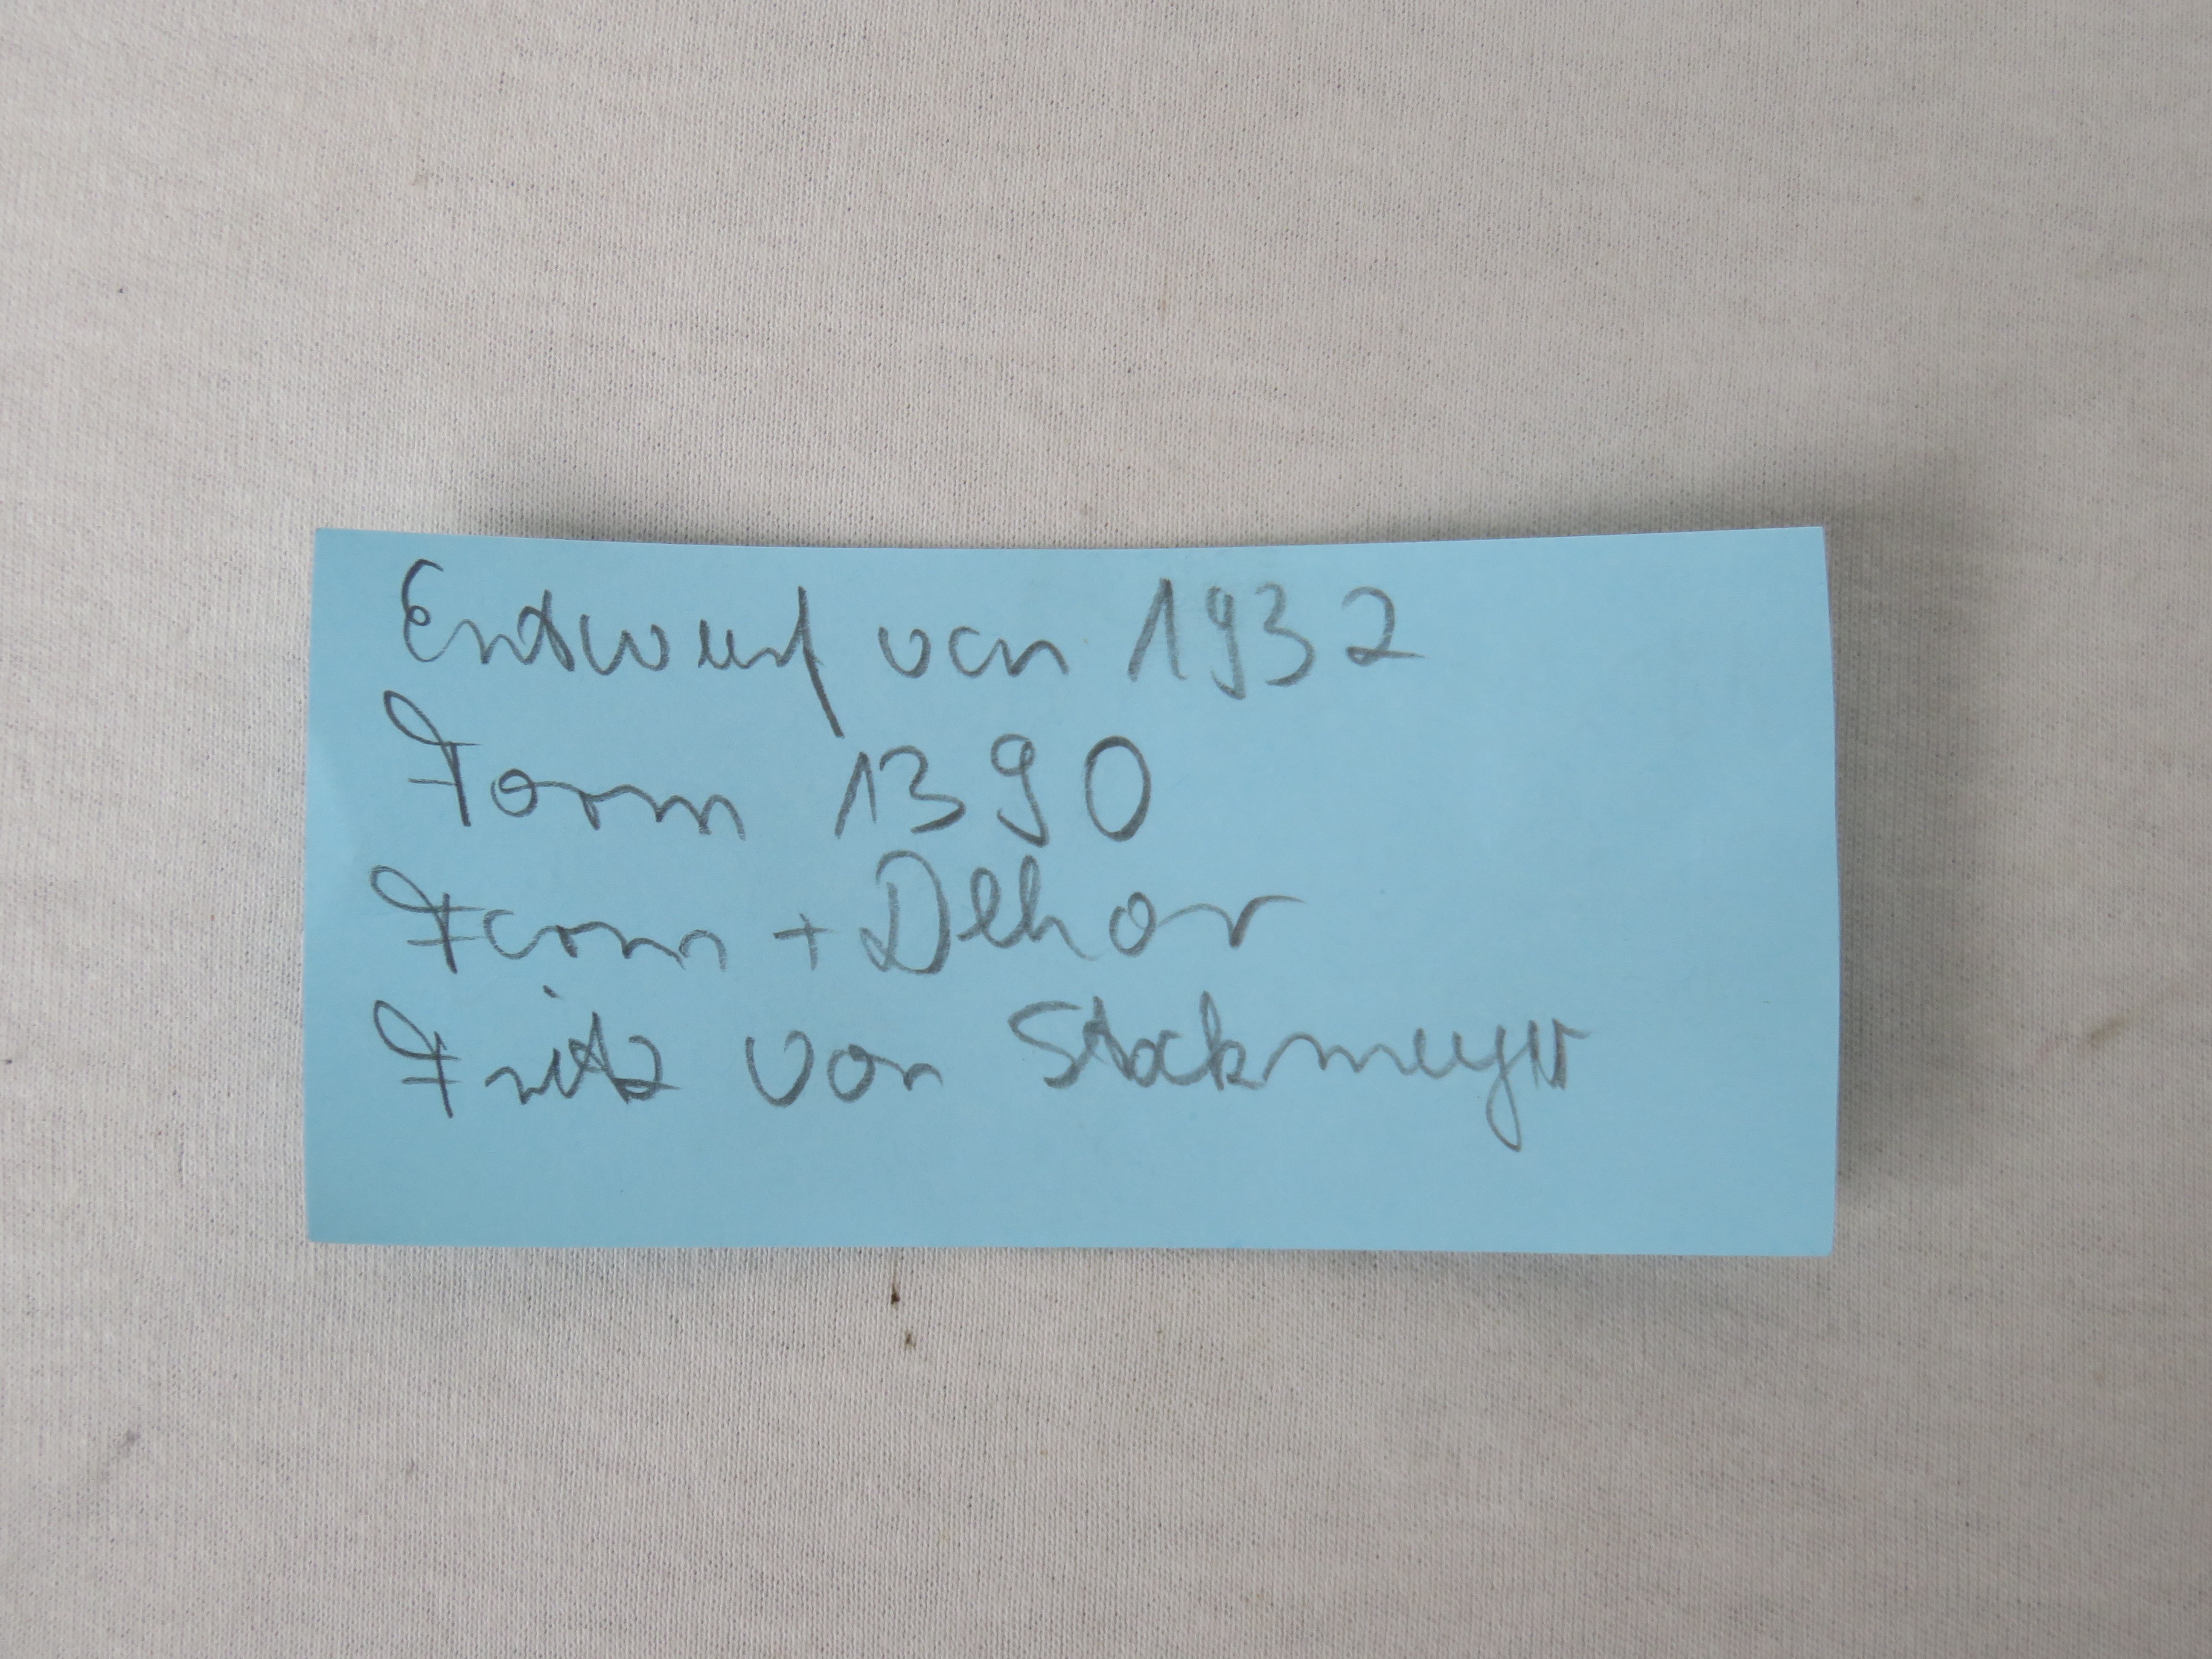 Entwurf von 1932
Form 1390
Form + Dekor
Fritz von Stockmeyer